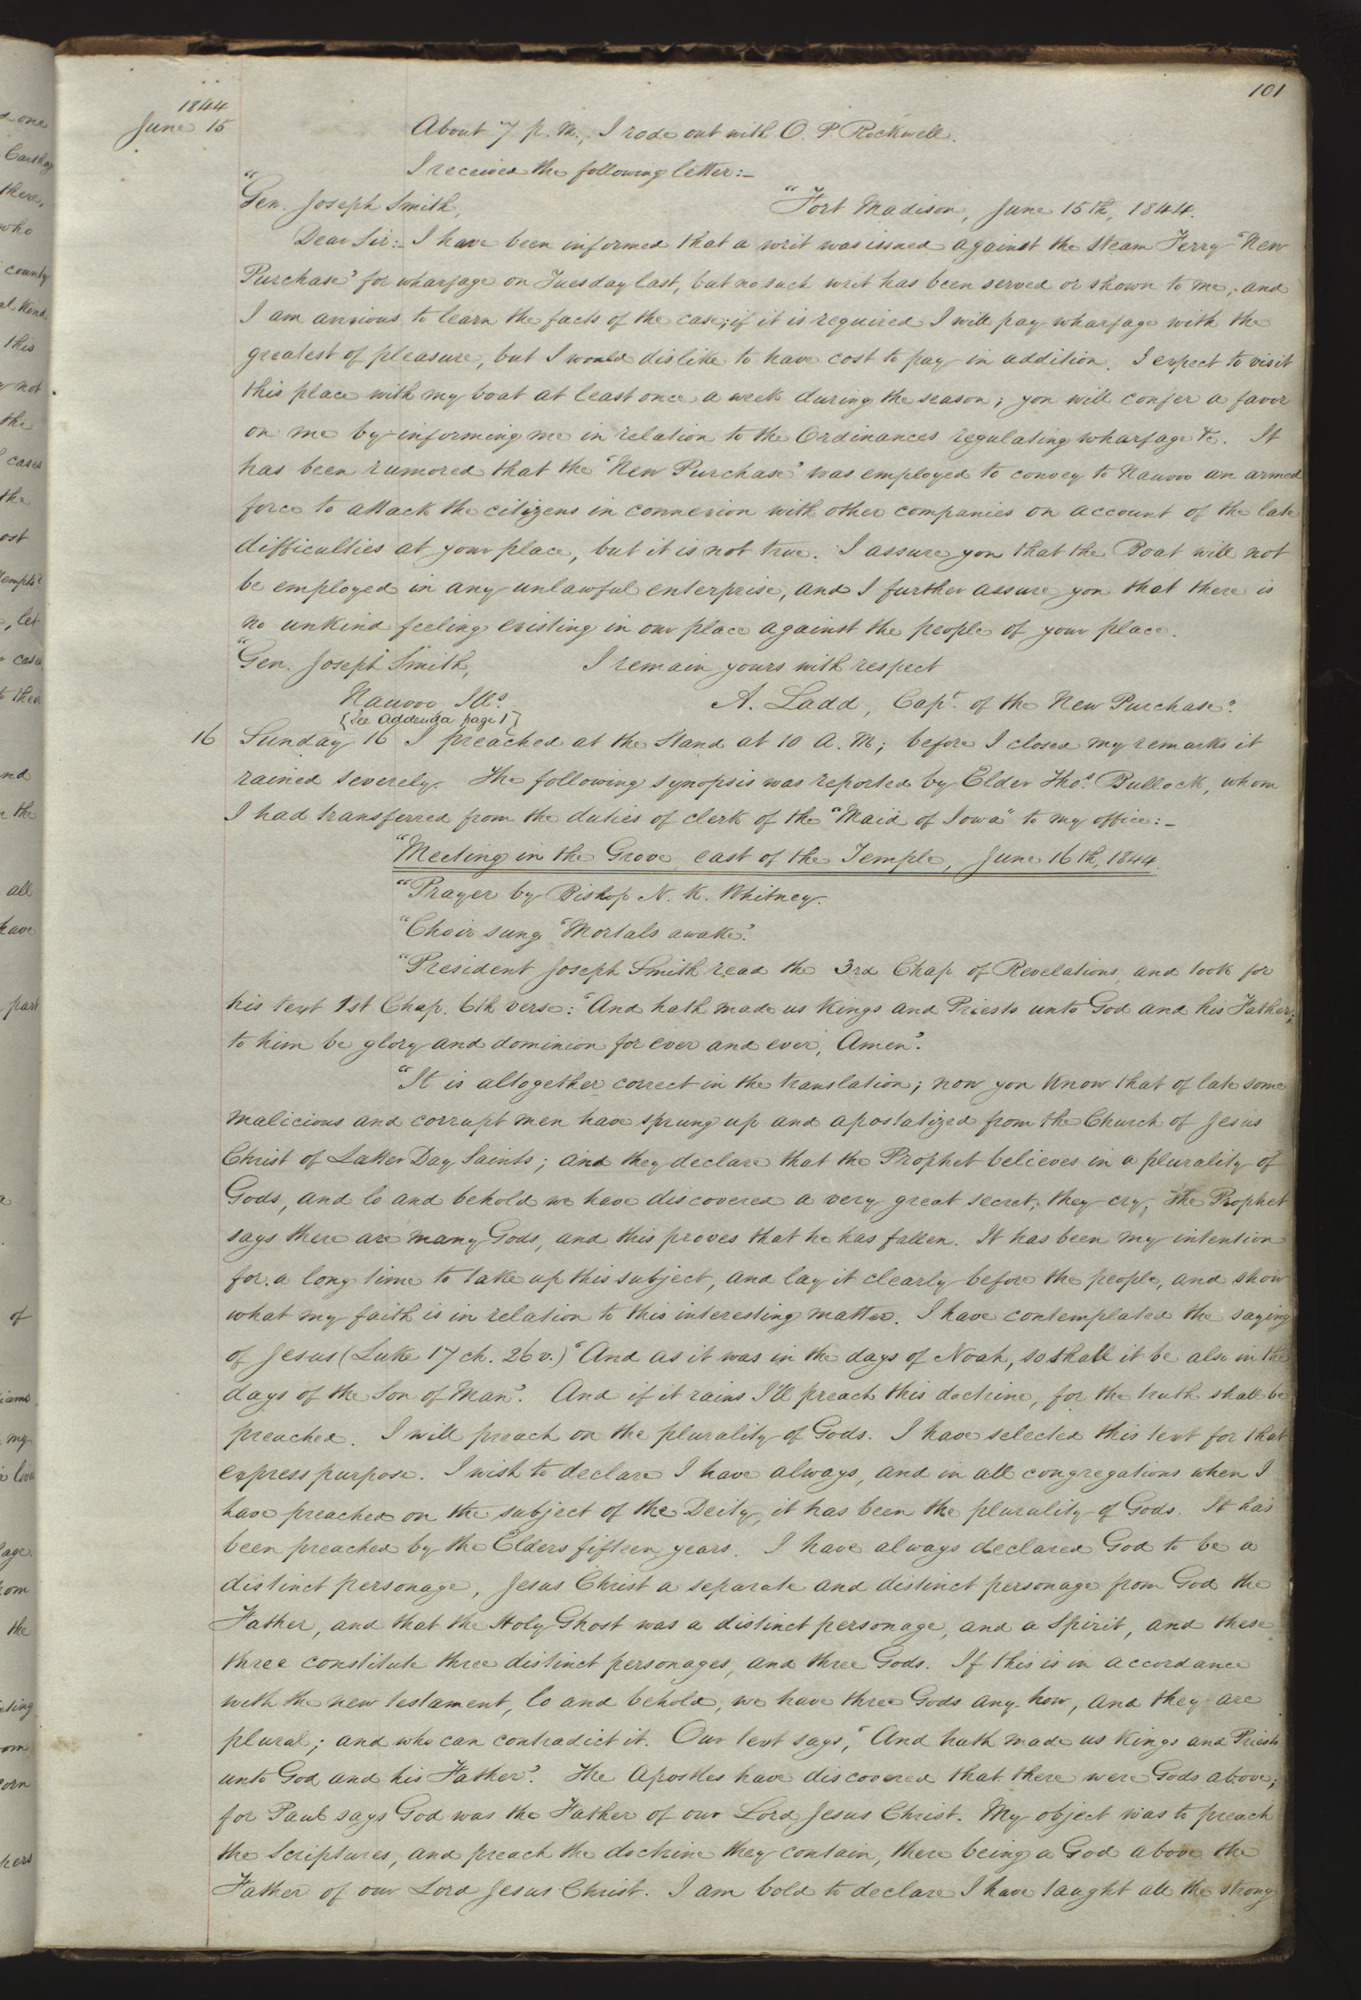 101
1844
June 15
About 7 p. m., I rode out with O. P. Rockwell.
I received the following letter:—
"Gen. Joseph Smith, "Fort Madison, June 15th, 1844.
Dear Sir:— I have been informed that a writ was issued against the Steam Ferry "New
Purchase' for wharfage on Tuesday last, but no such writ has been served or shown to me, and
I am anxious to learn the facts of the case; if it is required I will pay wharfage with the
greatest of pleasure, but I would dislike to have cost to pay in addition. I expect to visit
this place with my boat at least once a week during the season; you will confer a favor
on me by informing me in relation to the Ordinances regulating wharfage &c. It
has been rumored that the 'New Purchase' was employed to convey to Nauvoo an armed
force to attack the citizens in connexion with other companies on account of the late
difficulties at your place, but it is not true. I assure you that the Boat will not
be employed in any unlawful enterprise, and I further assure you that there is
no unkind feeling existing in our place against the people of your place.
"Gen. Joseph Smith, I remain yours with respect
Nauvoo Ills. A. Ladd, Capt. of the New Purchase."
[See Addenda page 1]
16 Sunday 16 I preached at the Stand at 10 A. M; before I closed my remarks it
rained severely. The following synopsis was reported by Elder Thos. Bullock, whom
I had transferred from the duties of clerk of the "Maid of Iowa" to my office:—
"Meeting in the Grove, east of the Temple, June 16th, 1844.
"Prayer by Bishop N. K. Whitney.
"Choir sung 'Mortals awake'.
"President Joseph Smith read the 3rd Chap. of Revelations, and took for
his text 1st Chap. 6th verse: 'And hath made us Kings and Priests unto God and his Father;
to him be glory and dominion for ever and ever, Amen'.
"It is altogether correct in the translation; now you know that of late some
malicious and corrupt men have sprung up and apostatized from the Church of Jesus
Christ of Latter Day Saints; and they declare that the Prophet believes in a plurality of
Gods, and lo and behold we have discovered a very great secret, they cry, the Prophet
says there are many Gods, and this proves that he has fallen. It has been my intention
for a long time to take up this subject, and lay it clearly before the people, and show
what my faith is in relation to this interesting matter. I have contemplated the saying
of Jesus (Luke 17 ch. 26 v.) 'And as it was in the days of Noah, so shall it be also in the
days of the Son of Man'. And if it rains I'll preach this doctrine, for the truth shall be
preached. I will preach on the plurality of Gods. I have selected this text for that
express purpose. I wish to declare I have always, and in all congregations when I
have preached on the subject of the Deity, it has been the plurality of Gods. It has
been preached by the Elders fifteen years. I have always declared God to be a
distinct personage, Jesus Christ a separate and distinct personage from God the
Father, and that the Holy Ghost was a distinct personage, and a Spirit, and these
three constitute three distinct personages, and three Gods. If this is in accordance
with the new testament, lo and behold, we have three Gods any how, and they are
plural; and who can contradict it. Our text says, 'And hath made us Kings and Priests
unto God and his Father'. The Apostles have discovered that there were Gods above;
for Paul says God was the Father of our Lord Jesus Christ. My object was to preach
the Scriptures, and preach the doctrine they contain, there being a God above the
Father of our Lord Jesus Christ. I am bold to declare I have taught all the strong